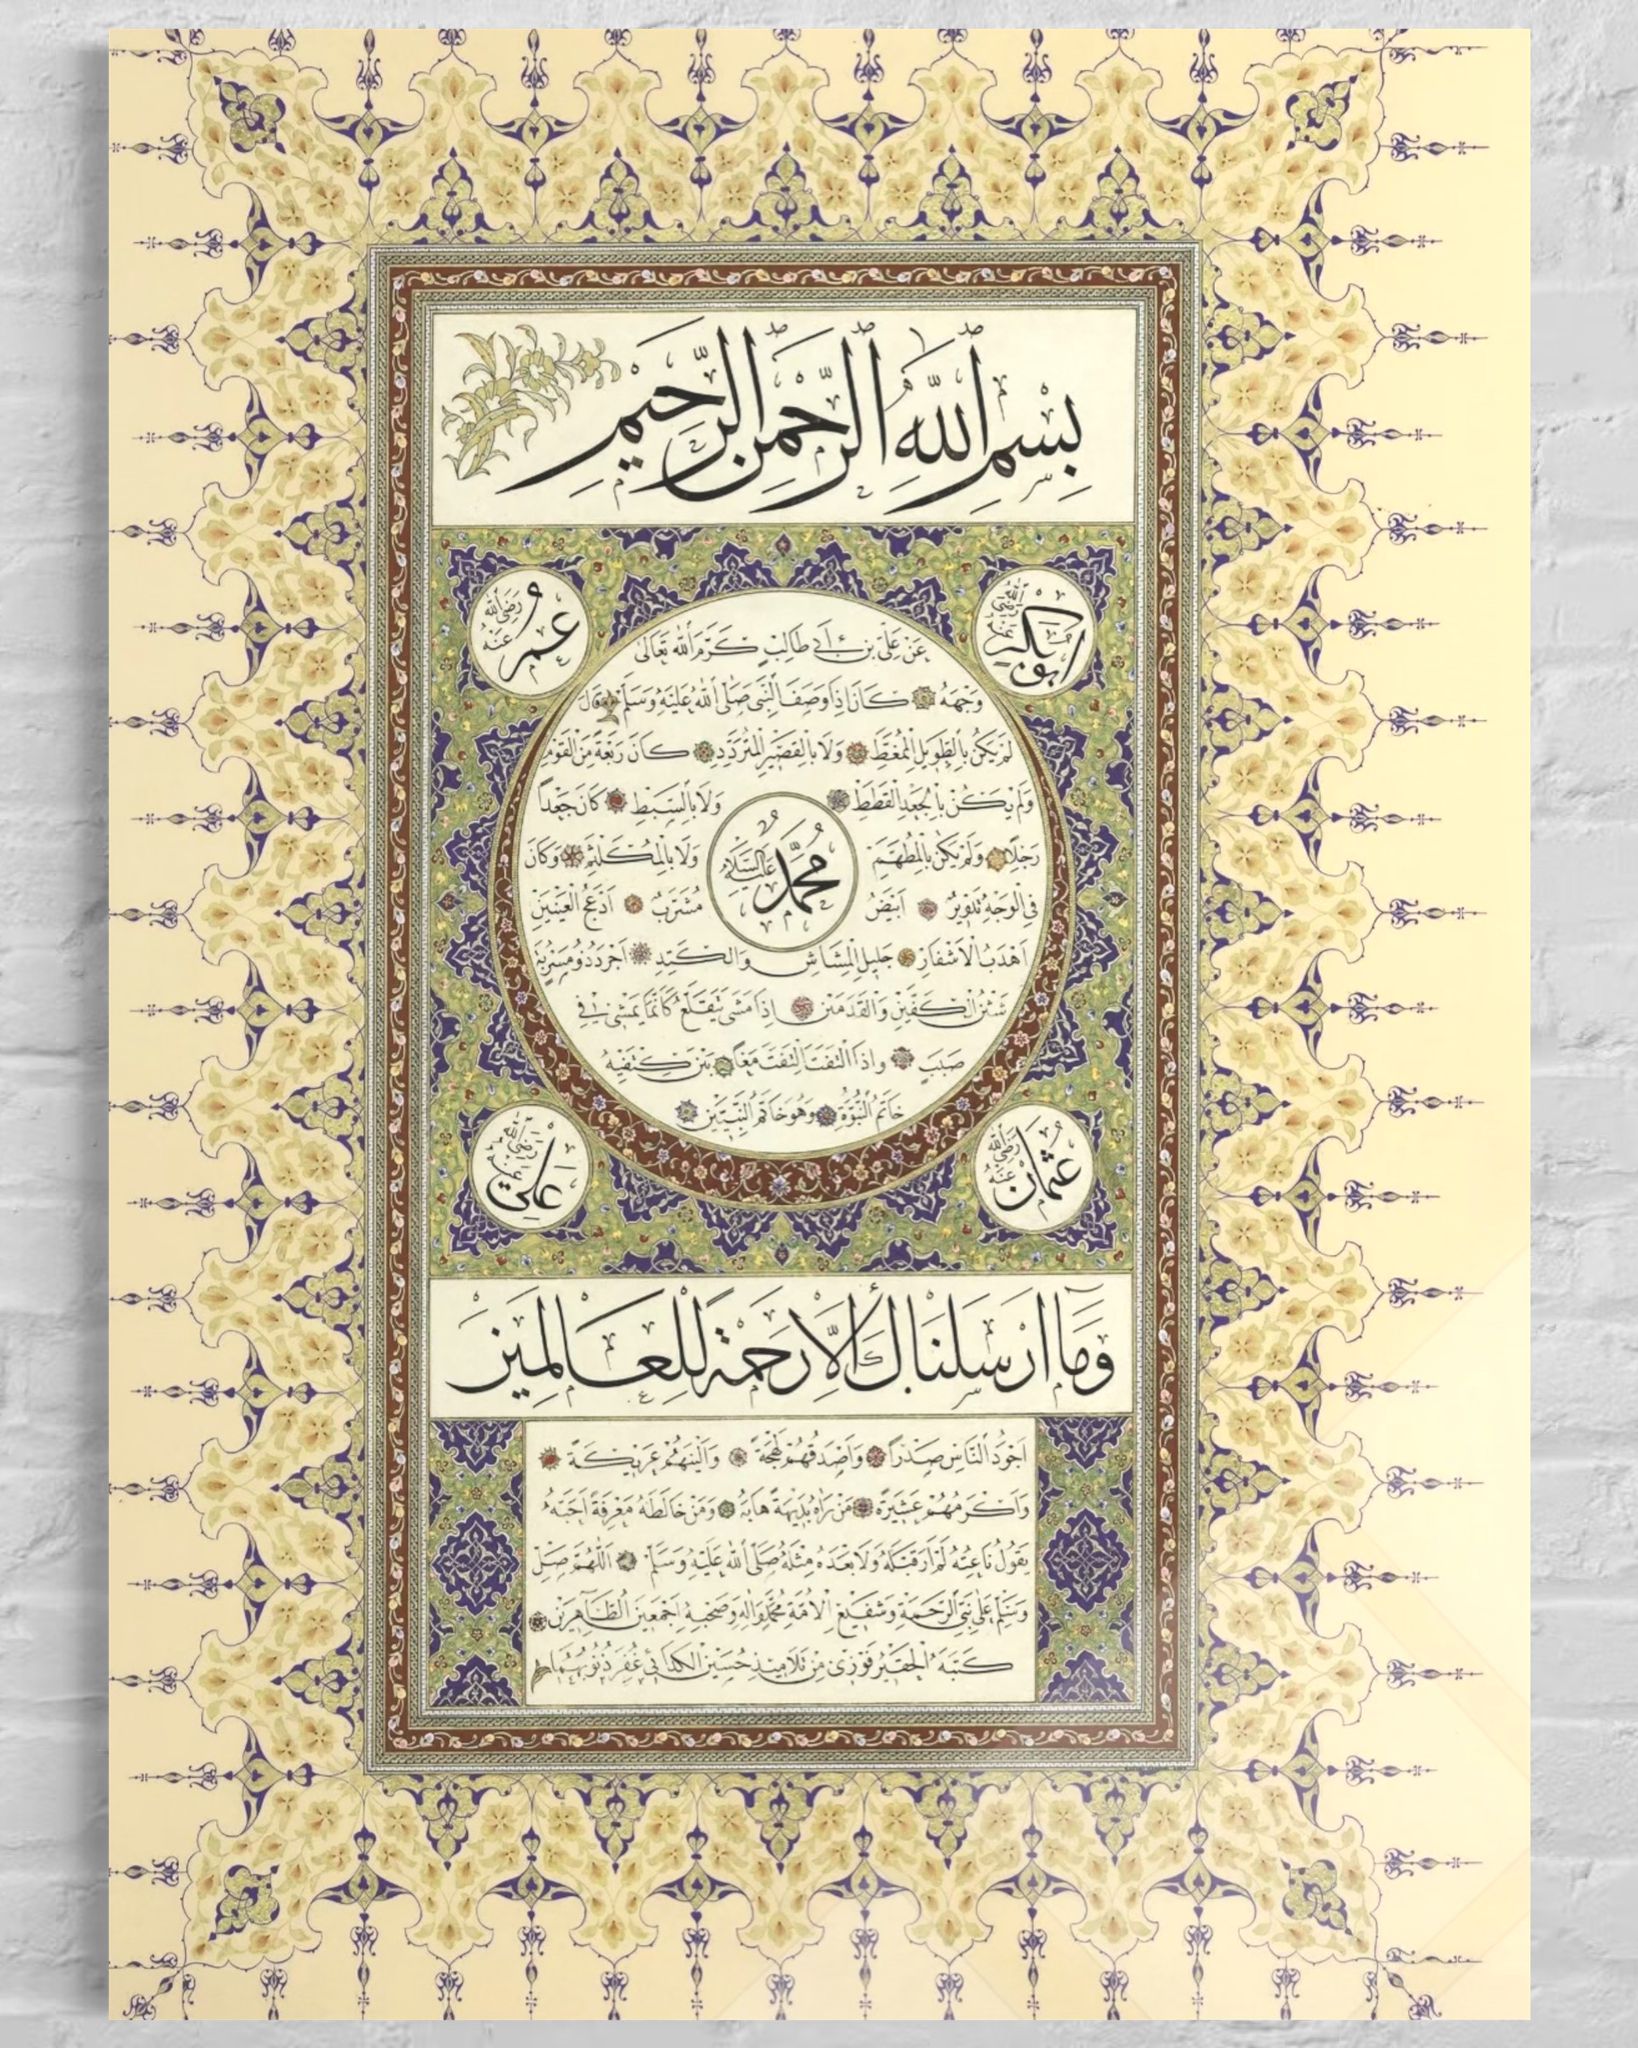 بِسْمِ اللّٰهِ الرَّحْمٰنِ الرَّحِيمِ
ابوبكر رضي الله عنه
عُمَر رَضِيَ اللّٰه عَنْهُ
عَنْ عَلِيّ بْنِ اَبِي طَالِبٍ كَرَّمَ اللّٰه تَعَالٰى
وَجْهَهُ كَانَ اِذَا وَصَفَ النَّبِيَّ صَلَّى اللّٰهُ عَلَيْهِ وَسَلَّمَ قَالَ
لَمْ يَكُنْ بِالطَّوِيلِ الْمُمَغَّطِ وَلَا بِالْقَصِيرِ الْمُتَرَدِّدِ كَانَ رَبْعَةً مِنَ الْقَوْمِ
وَلَمْ يَكُنْ بِالْجَعْدِ الْقَطَطِ وَلَا بِالسَّبْطِ كَانَ جَعْداً
رَجِلًا وَلَمْ يَكُنْ بِالْمُطَهَّمِ وَلَا بِالْمُكَلْثَمِ وَكَانَ
مُحَمَّد عليه السلام
فِي الْوَجْهِ تَدْوِيرٌ اَبْيَضُ مُشْرَبٌ اَدْعَجُ الْعَيْنَيْنِ
اَهْدَبُ الْاَشْفَارِ جَلِيلُ الْمُشَاشِ وَالْكَتَدِ اَجْرَدُ ذُو مَسْرُبَة
شَثْنُ الْكَفَّيْنِ وَالْقَدَمَيْنِ اِذَا مَشَى تَقَلَّعَ كَاَنَّمَا يَمْشِي فِي
صَبَبٍ وَاِذَا الْتَفَتَ الْتَفَتَ مَعاً بَيْنَ كَتِفَيْهِ
خَاتَمُ النُّبُوَّةِ وَهُوَ خَاتَمُ النَّبِيِّينَ
عُثْمَان رَضِيَ اللّٰه عَنْهُ
عَلِيّ رَضِيَ اللّٰه عَنْهُ
وَمَا اَرْسَلْنَاكَ اِلَّا رَحْمَةً لِلْعَالَمِينَ
اَجْوَدُ النَّاسِ صَدْراً وَاَصْدَقُهُمْ لَهْجَةً وَاَلْيَنُهُمْ عَرِيكَةً
وَاَكْرَمُهُمْ عَشِيرَةً مَنْ رَاٰهُ بَدِيهَةً هَابَهُ وَمَنْ خَالَطَهُ مَعْرِفَةً اَحَبَّهُ
يَقُولُ نَاعِتُهُ لَمْ اَرَ قَبْلَهُ وَلَا بَعْدَهُ مِثْلَهُ صَلَّى اللّٰه عَلَيْهِ وَسَلَّمَ اَللّٰهُمَّ صَلِّ
وَسَلِّمْ عَلٰى نَبِيِّ الرَّحْمَةِ وَشَفِيعِ الْاُمَّةِ مُحَمَّدٍ وَاٰلِهِ وَصَحْبِهِ اَجْمَعِينَ الطَّاهِرِينَ
كَتَبَهُ الْحَقِيرُ فَوْزِي مِنْ تَلَامِيذِ حُسَيْن الْكَدَائِي غُفِرَ ذُنُوبُهُمَا